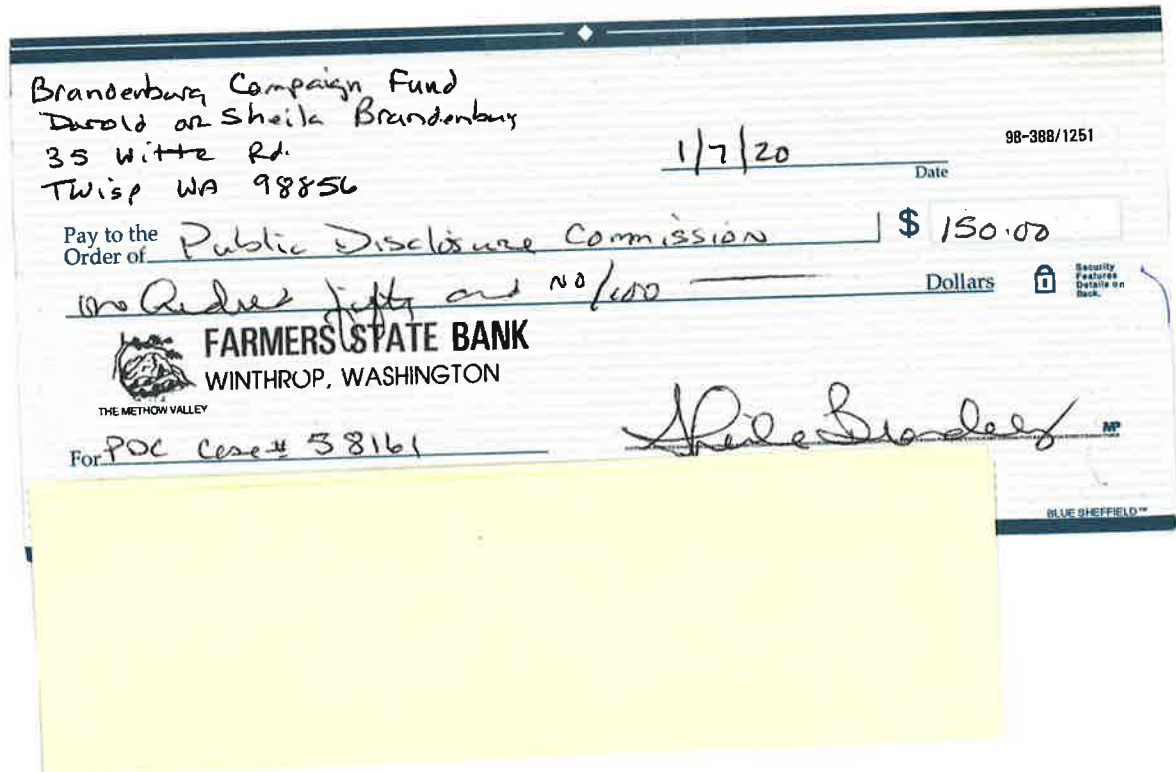 Brandenburg Campaign Fund
Darold or Sheila Brandenburg
35 Witte Rd.
Twisp WA 98856
1/7/20
98-388/1251
Date
Pay to the
Order of Public Disclosure Commission $ 150.00
fifty and NO/100 Dollars
Security
Features
Details on
Back.
FARMERS STATE BANK
WINTHROP, WASHINGTON
THE METHOW VALLEY
For POC Case# 58161
Sheila Brandenburg MP
BLUE SHEFFIELD™